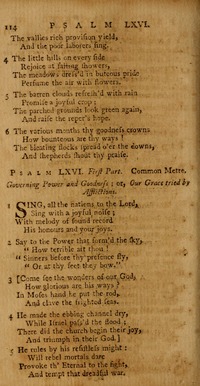 114 PSALM LXVI.
The vallies rich provision yield,
And the poor laborers sing.
4 The little hills on every side
Rejoice at falling showers,
The meadows dress'd in beauteous pride
Perfume the air with flowers.
5 The barren clouds refresh'd with rain
Promise a joyful crop;
The parched grounds look green again,
And raise the reper's hope.
6 The various months thy goodness crowns
How bounteous are thy ways!
The bleating flocks spread o'er the downs,
And shepherds shout thy praise.
PSALM LXVI. First Part. Common Metre.
Governing Power and Goodness; or, Our Grace tried by
Afflictions.
1 SING, all the nations to the Lord,
Sing with a joyful noise;
With melody of sound record
His honours and your joys.
2 Say to the Power that form'd the sky,
"How terrible art thou!
"Sinners before thy presence fly,
"Or at thy feet they bow."
3 [Come see the wonders of our God,
How glorious are his ways?
In Moses hand he put the rod,
And clave the frighted seas.
4 He made the ebbing channel dry,
While Israel pass'd the flood;
There did the church begin their joy,
And triumph in their God.]
5 He rules by his resistless might:
Will rebel mortals dare
Provoke th' Eternal to the fight,
And tempt that dreadful war.